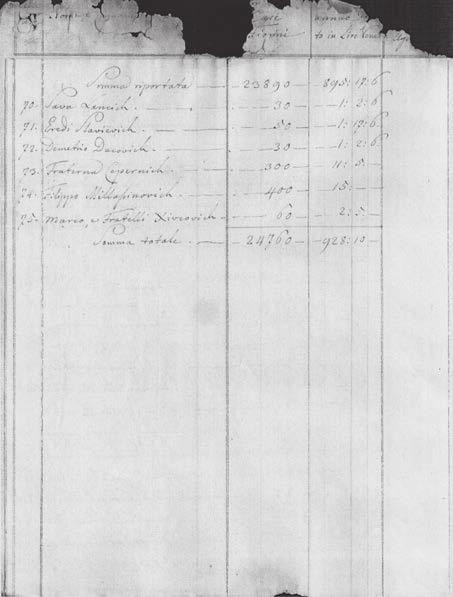 annuo
to in Lire Vene
Somma riportata — 23890 — 895: 17: 6
70. Sava Lancich. — 30 — 1: 2: 6
71. Eredi Slavievich. — 50 — 1: 17: 6
72. Demetrio Dacovich. — 30 — 1: 2: 6
73. Fraterna Cepernich. — 300 — 11: 5 —
74. Filippo Millassinovich. — 400 — 15: —
75. Marco, e Fratelli Xivcovich. — 60 — 2: 5. —
Somma totale. — 24760 — 928: 10 —